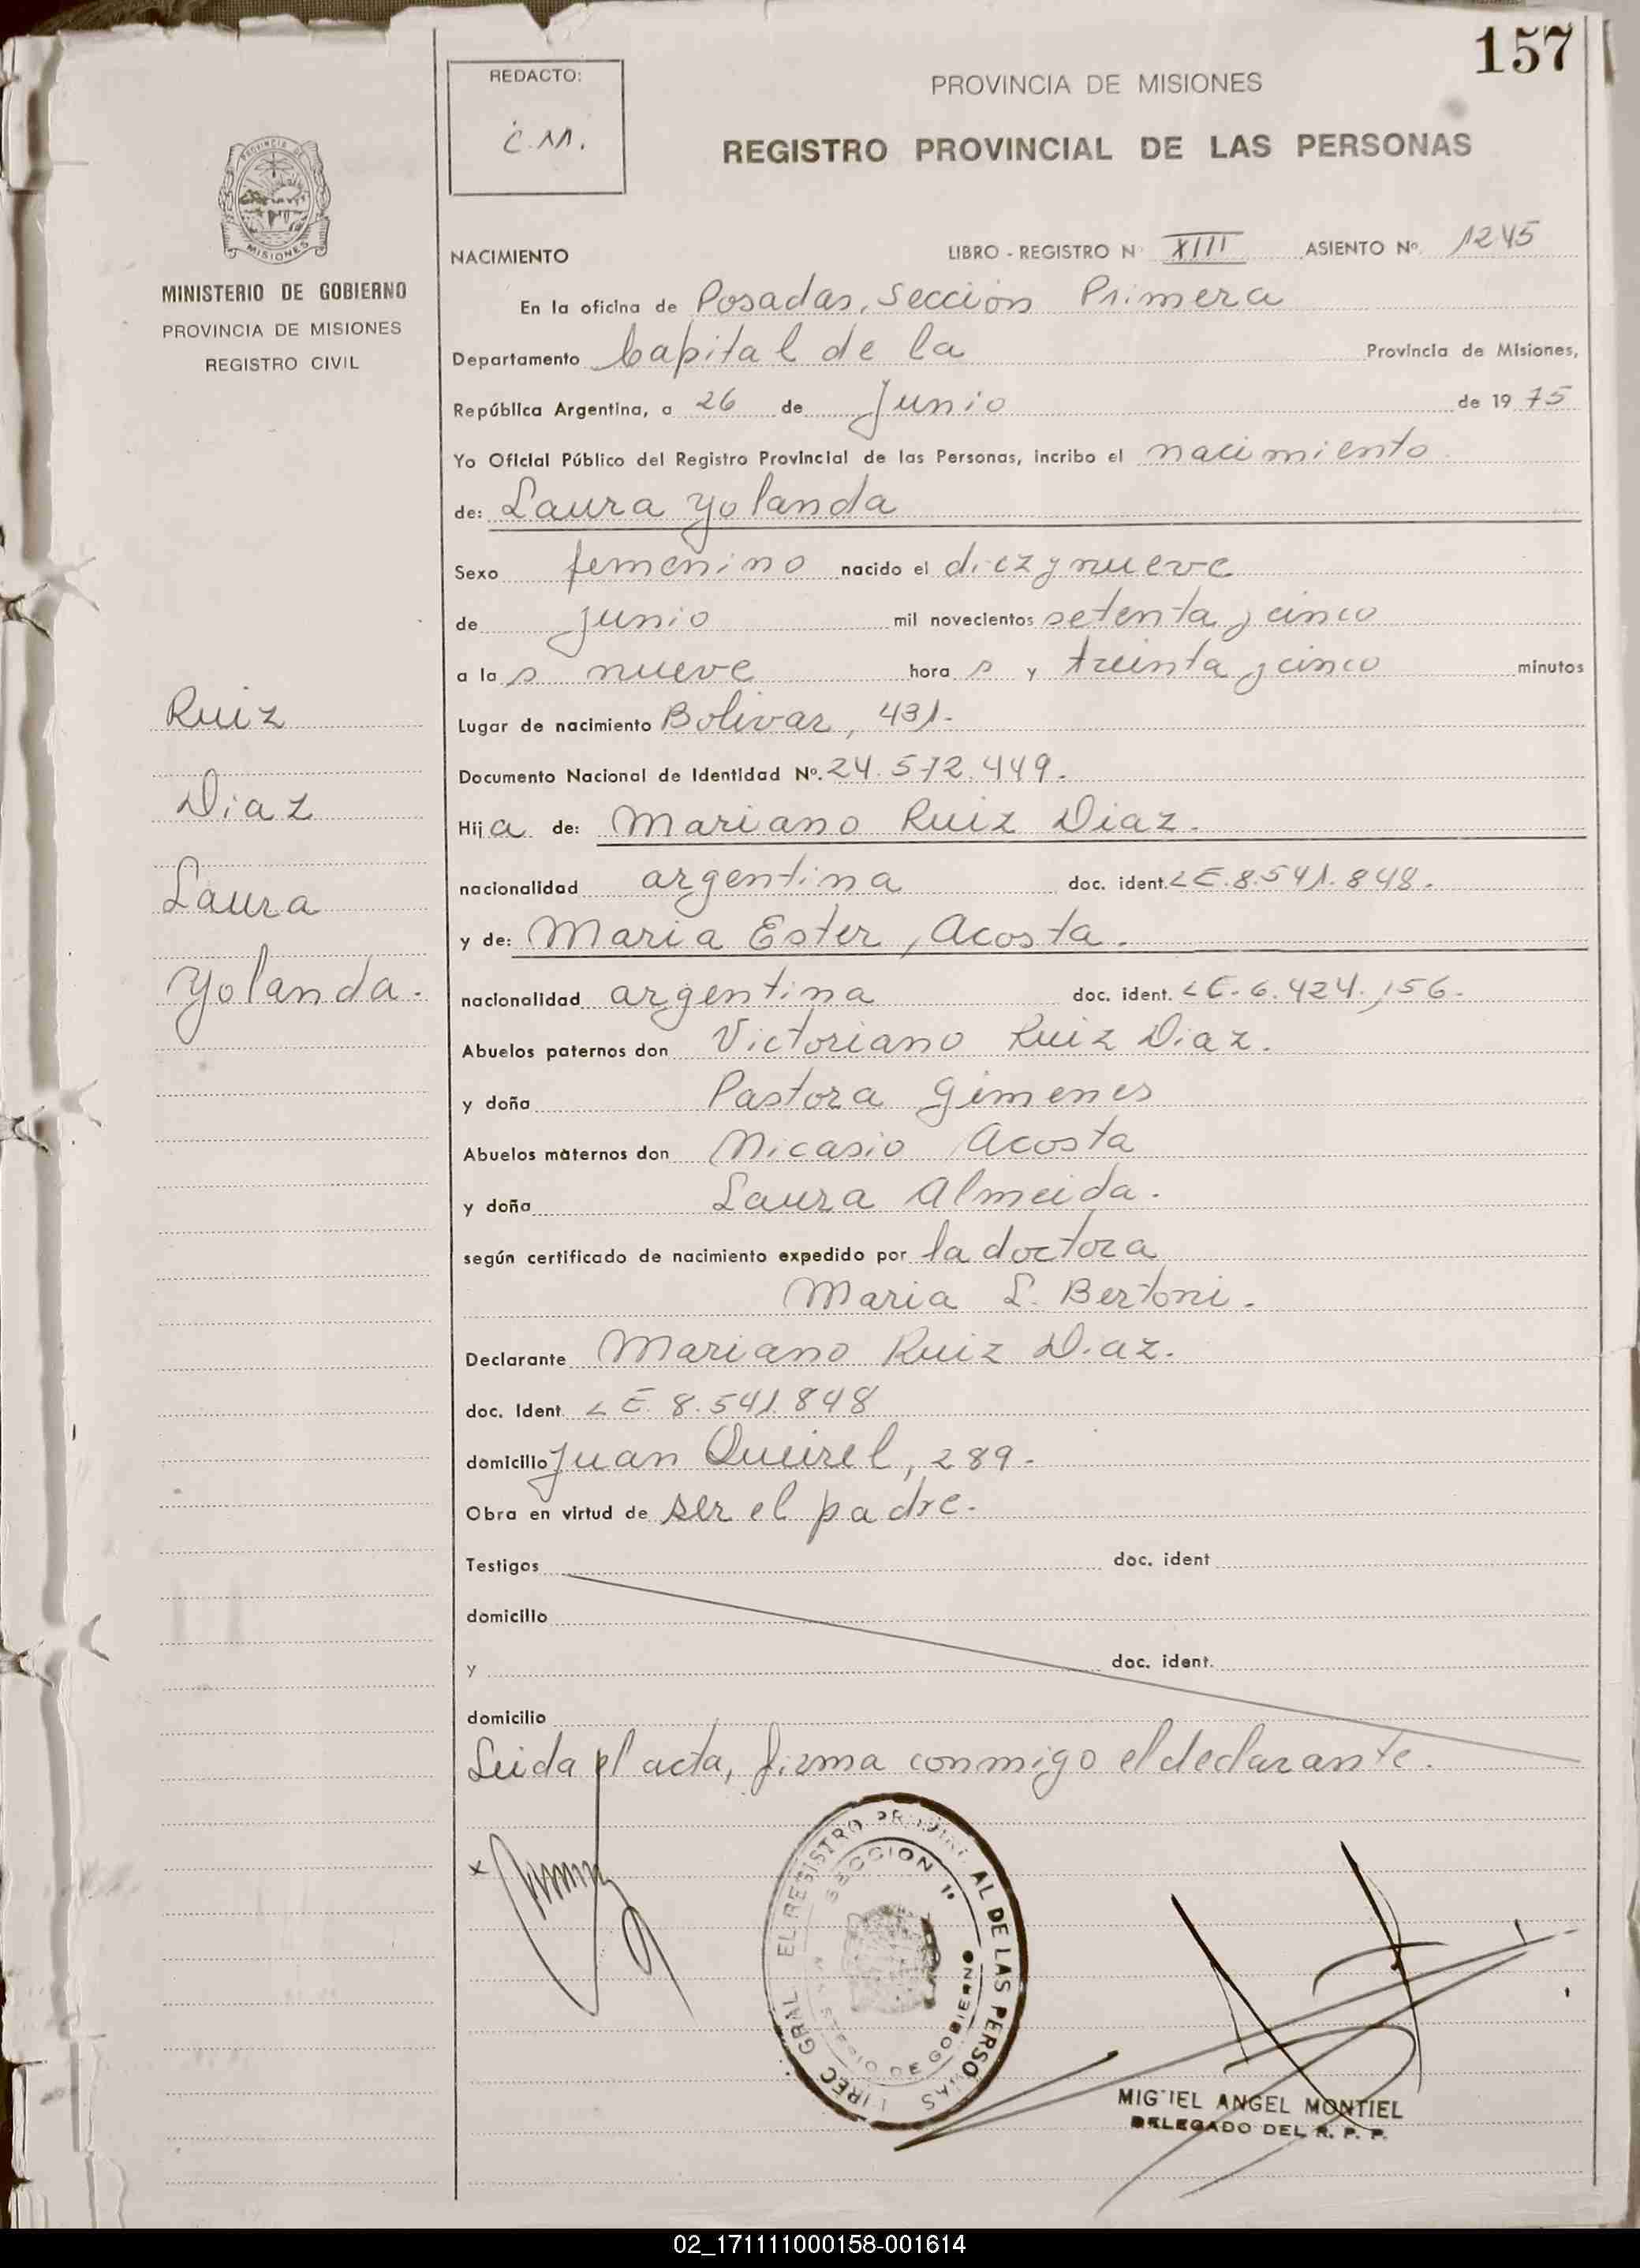 157
REDACTO:
C.M.
PROVINCIA DE MISIONES
REGISTRO PROVINCIAL DE LAS PERSONAS
PROVINCIA DE
MISIONES
MINISTERIO DE GOBIERNO
PROVINCIA DE MISIONES
REGISTRO CIVIL
NACIMIENTO LIBRO - REGISTRO Nº XIII ASIENTO Nº. 1245
En la oficina de Posadas, Sección Primera
Departamento Capital de la Provincia de Misiones,
República Argentina, a 26 de Junio de 1975
Yo Oficial Público del Registro Provincial de las Personas, incribo el nacimiento
de: Laura Yolanda
Sexo femenino nacido el diez y nueve
de junio mil novecientos setenta y cinco
a las nueve horas y treinta y cinco minutos
Lugar de nacimiento Bolivar, 431.-
Documento Nacional de Identidad Nº. 24.572.449.
Hija de: Mariano Ruiz Diaz.
nacionalidad argentina doc. ident. LE. 8.541.848.
y de: Maria Ester, Acosta.
nacionalidad argentina doc. ident. LE. 6.424.156.
Abuelos paternos don Victoriano Ruiz Diaz.
y doña Pastora Gimenes
Abuelos maternos don Nicasio Acosta
y doña Laura Almeida.
según certificado de nacimiento expedido por la doctora
Maria L. Bertoni.
Declarante Mariano Ruiz Diaz.
doc. Ident. LE. 8.541.848
domicilio Juan Queirel, 289.
Obra en virtud de ser el padre.
Testigos doc. ident
domicilio
y doc. ident.
domicilio
Leida el acta, firma conmigo el declarante.
Ruiz
Diaz
Laura
Yolanda.
SECCION 1º
DE GOBIERNO
MIGUEL ANGEL MONTIEL
DELEGADO DEL R. P. P.
02_171111000158-001614